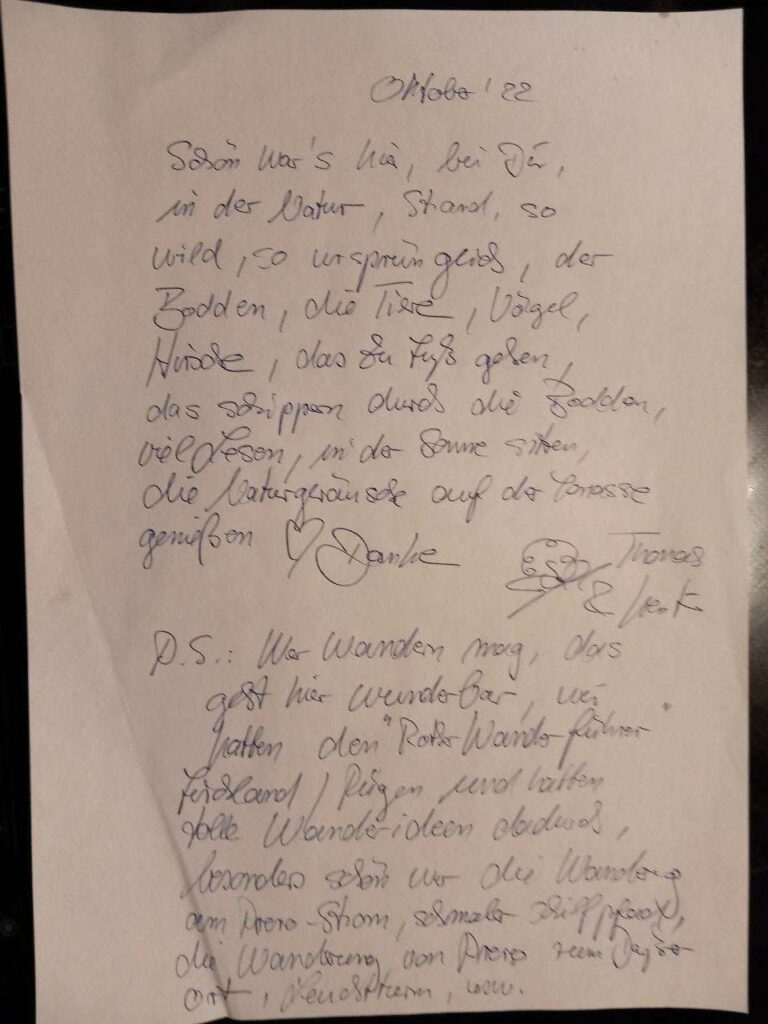 Oktober '22
Schön war's hier, bei Dir,
in der Natur, Strand, so
wild, so ursprünglich, der
Bodden, die Tiere, Vögel,
Hirsche, das zu Fuß gehen,
das schippern durch die Bodden,
viel Lesen, in der Sonne sitzen,
die Naturgeräusche auf der Terrasse
genießen ♡ Danke
Thomas
&
P.S.: Wer Wandern mag, das
geht hier wunderbar, wir
hatten den "Roter Wanderführer"
/ Rügen und hatten
tolle Wanderideen dadurch,
besonders schön war die Wanderung
am Prero-Strom, schmaler Schilfpfad,
die Wanderung von Prero zum Darßer
Ort, Leuchtturm, usw.